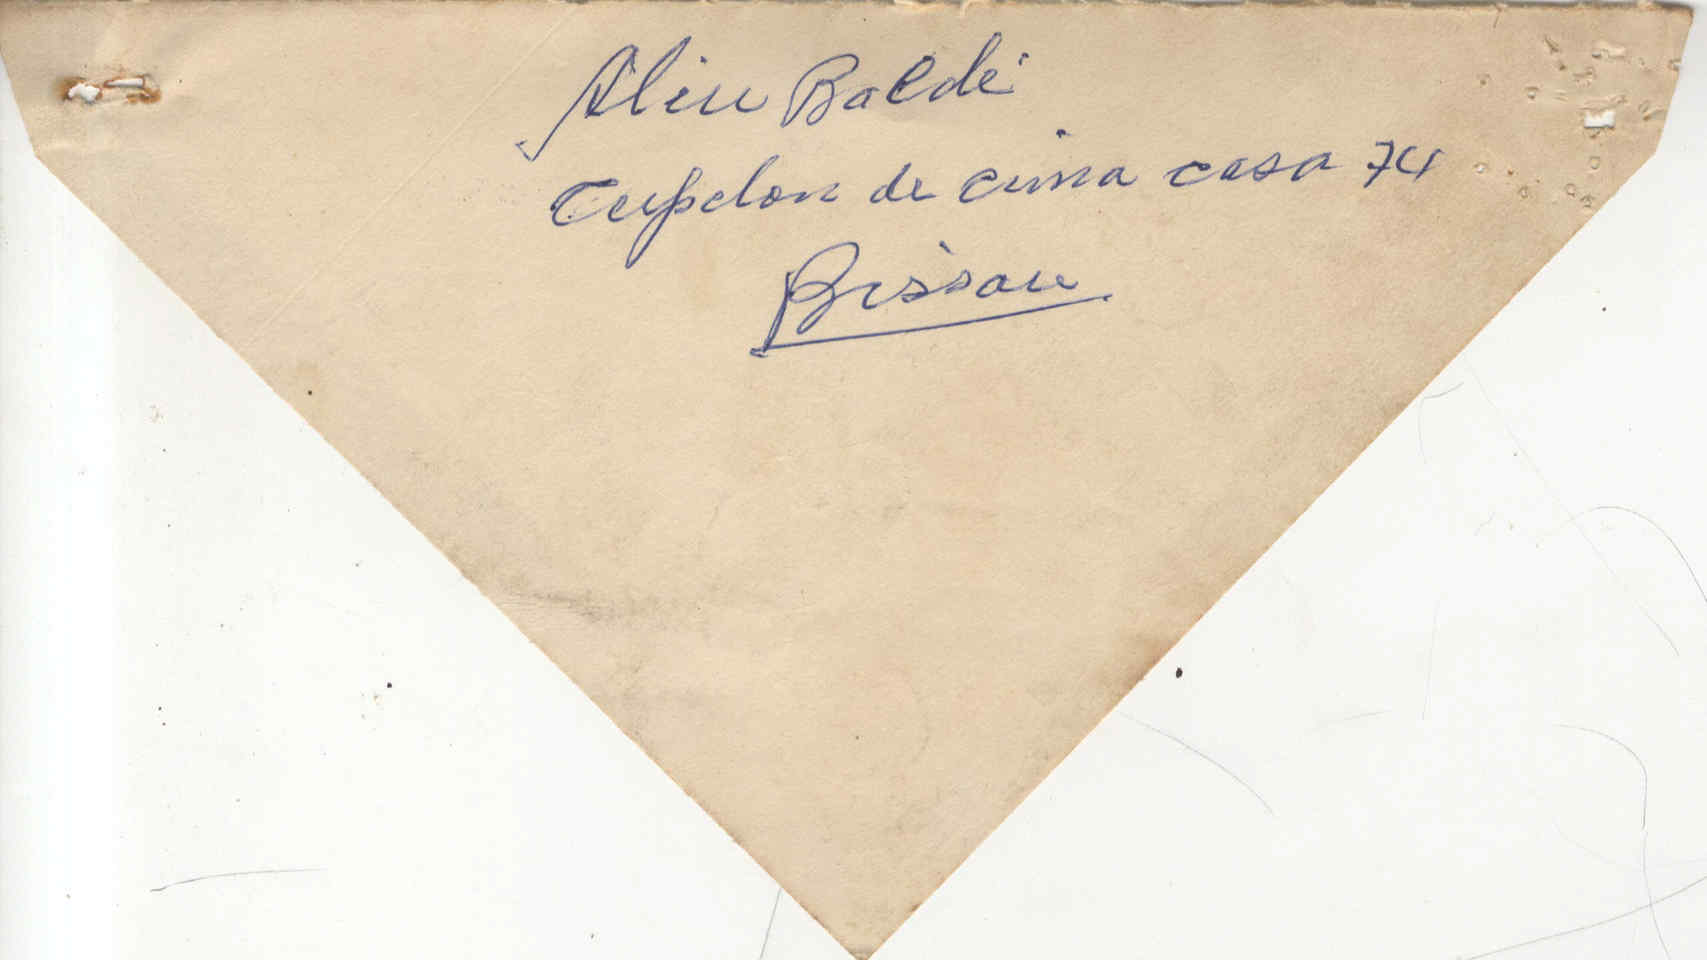 Aliu Baldé
Cupelon de cima casa 74
Bissau